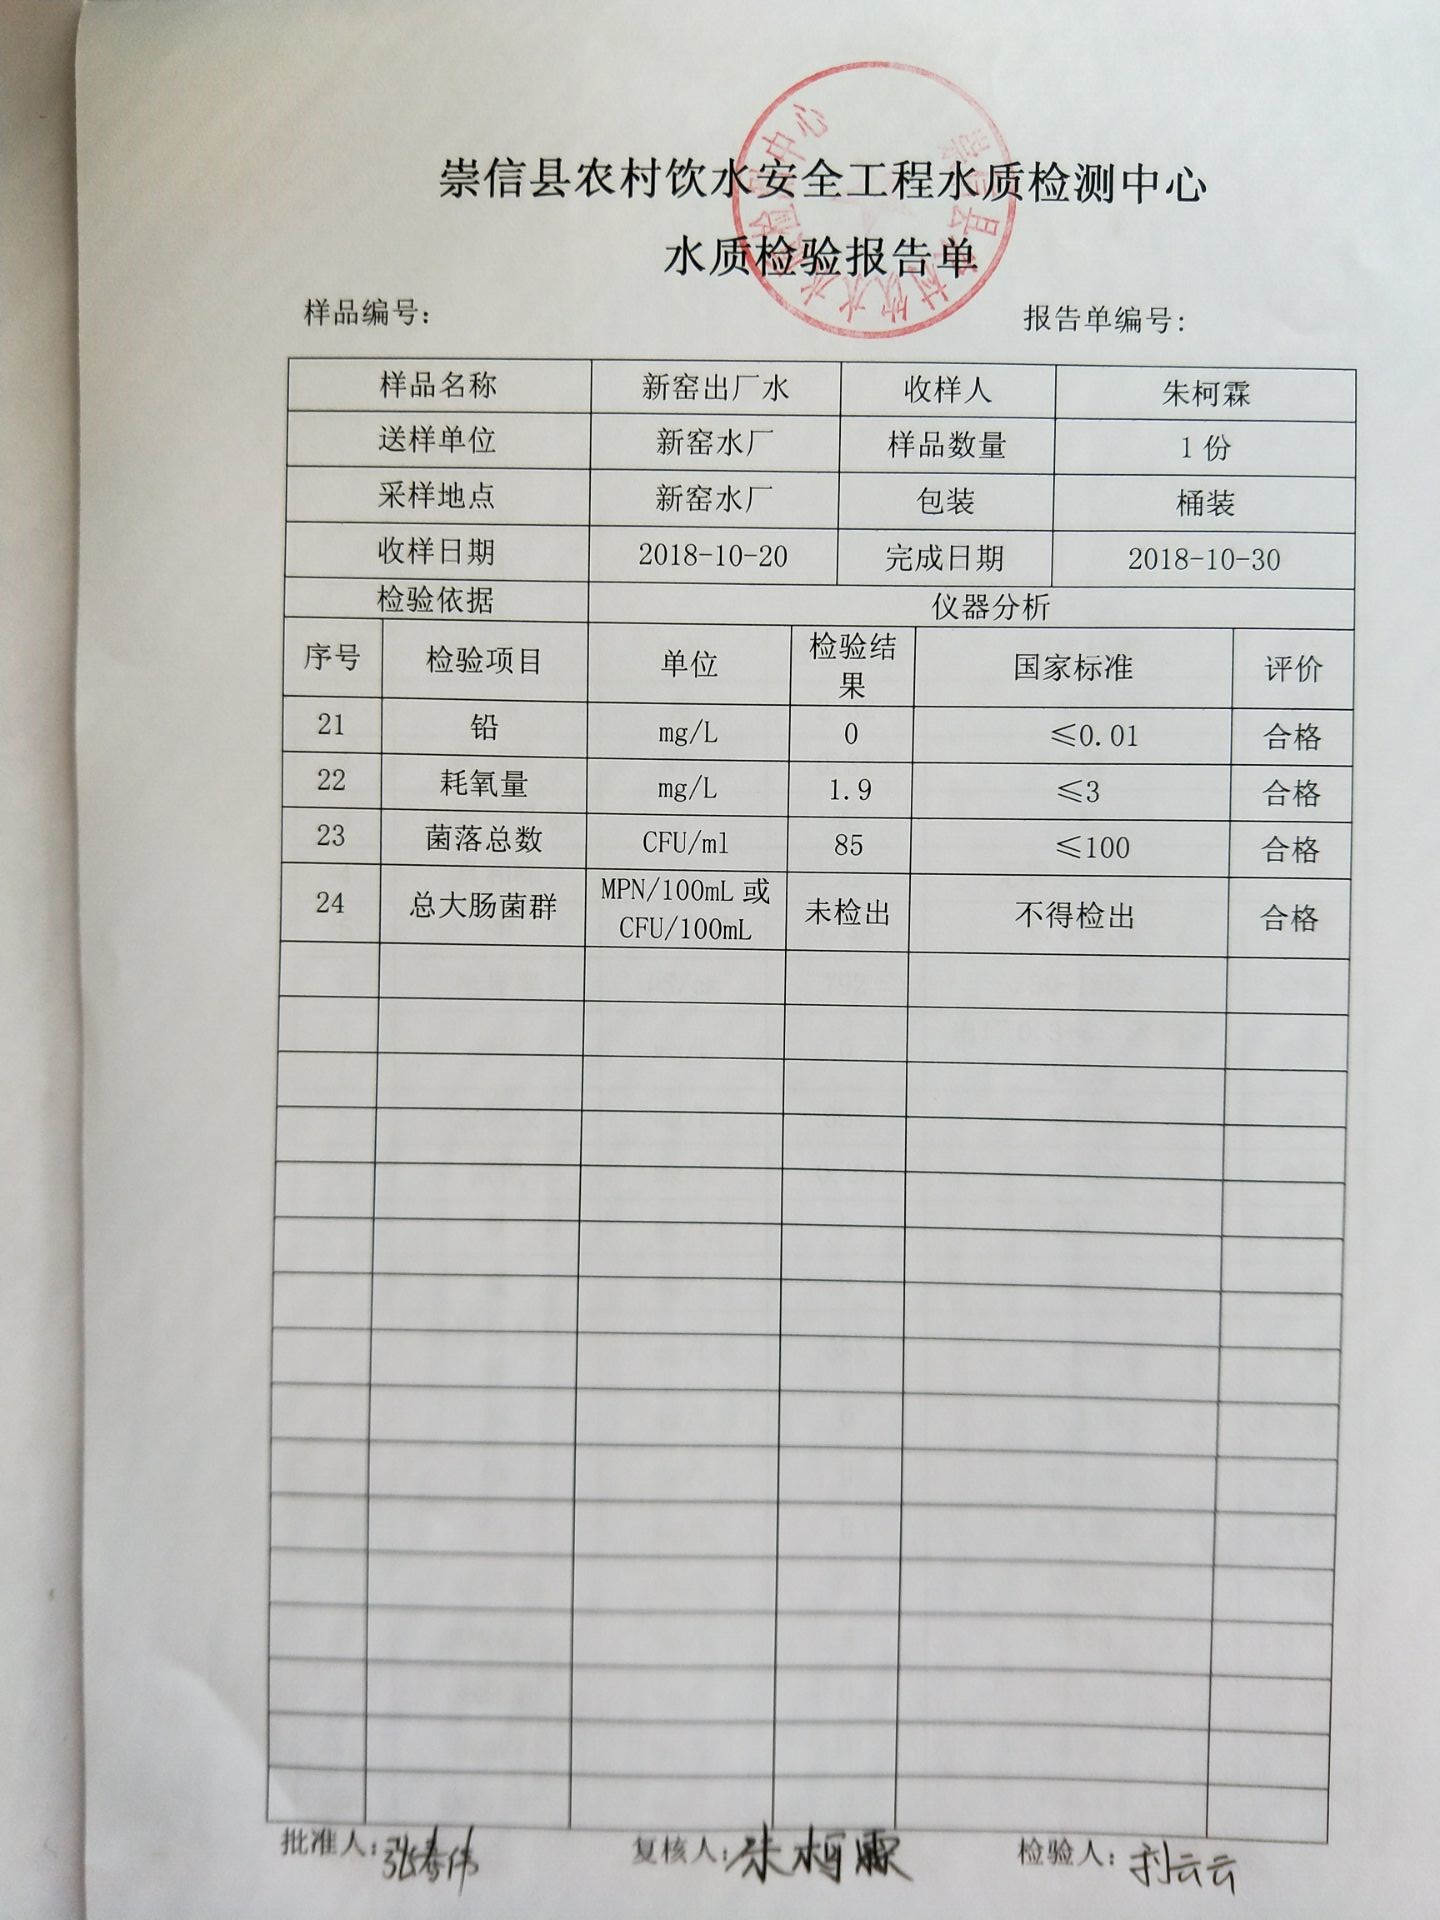 崇信县农村饮水安全工程水质检测中心
水质检验报告单
样品编号： 报告单编号：
样品名称 新窑出厂水 收样人 朱柯霖
送样单位 新窑水厂 样品数量 1份
采样地点 新窑水厂 包装 桶装
收样日期 2018-10-20 完成日期 2018-10-30
检验依据 仪器分析
序号 检验项目 单位 检验结果 国家标准 评价
21 铅 mg/L 0 ≤0.01 合格
22 耗氧量 mg/L 1.9 ≤3 合格
23 菌落总数 CFU/ml 85 ≤100 合格
24 总大肠菌群 MPN/100mL或CFU/100mL 未检出 不得检出 合格
批准人：张春伟 复核人：朱柯霖 检验人：刘云云